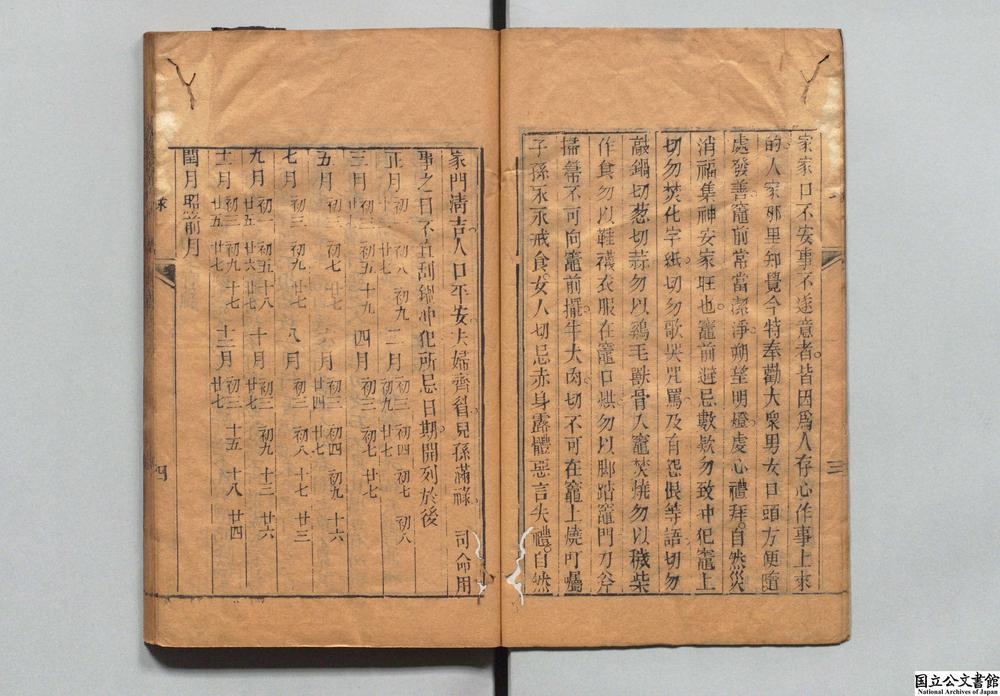 家家口不安事不遂意者皆因爲人存心作事上來
的人家那里知覺今特奉勸大衆男女日頭方便隨
處發善竈前常當潔淨朔望明燈虔心禮拜自然災
消福集神安家旺也竈前避忌數欵勿致冲犯竈上
切勿焚化字紙切勿歌哭咒罵及有怨恨等語切勿
敲鍋切葱切蒜勿以鷄毛獸骨入竈焚燒勿以穢柴
作食勿以鞋襪衣服在竈口烘勿以脚踏竈門刀斧
掃箒不可向竈前擺牛犬肉切不可在竈上燒叮囑
子孫永永戒食女人切忌赤身露體惡言失禮自然
三
家門清吉人口平安夫婦齊眉兒孫滿祿 司命用
事之日不宜刮鍋冲犯所忌日期開列於後
正月 初八 初九 廿七 二月 初三 初四 初七 初八 初九 廿七
三月 初五 十九 四月 初三 廿七
五月 初七 廿七 六月 初四 初九 十六 廿四 廿七
七月 初三 初九 廿七 八月 初三 初八 十七 廿三
九月 初五 十八 廿五 廿六 廿七 十月 初三 初九 十二 廿六 廿七
十一月 初三 初九 十七 廿五 廿七 十二月 初三 十五 十八 廿四 廿七
閏月照前月
四
国立公文書館
National Archives of Japan